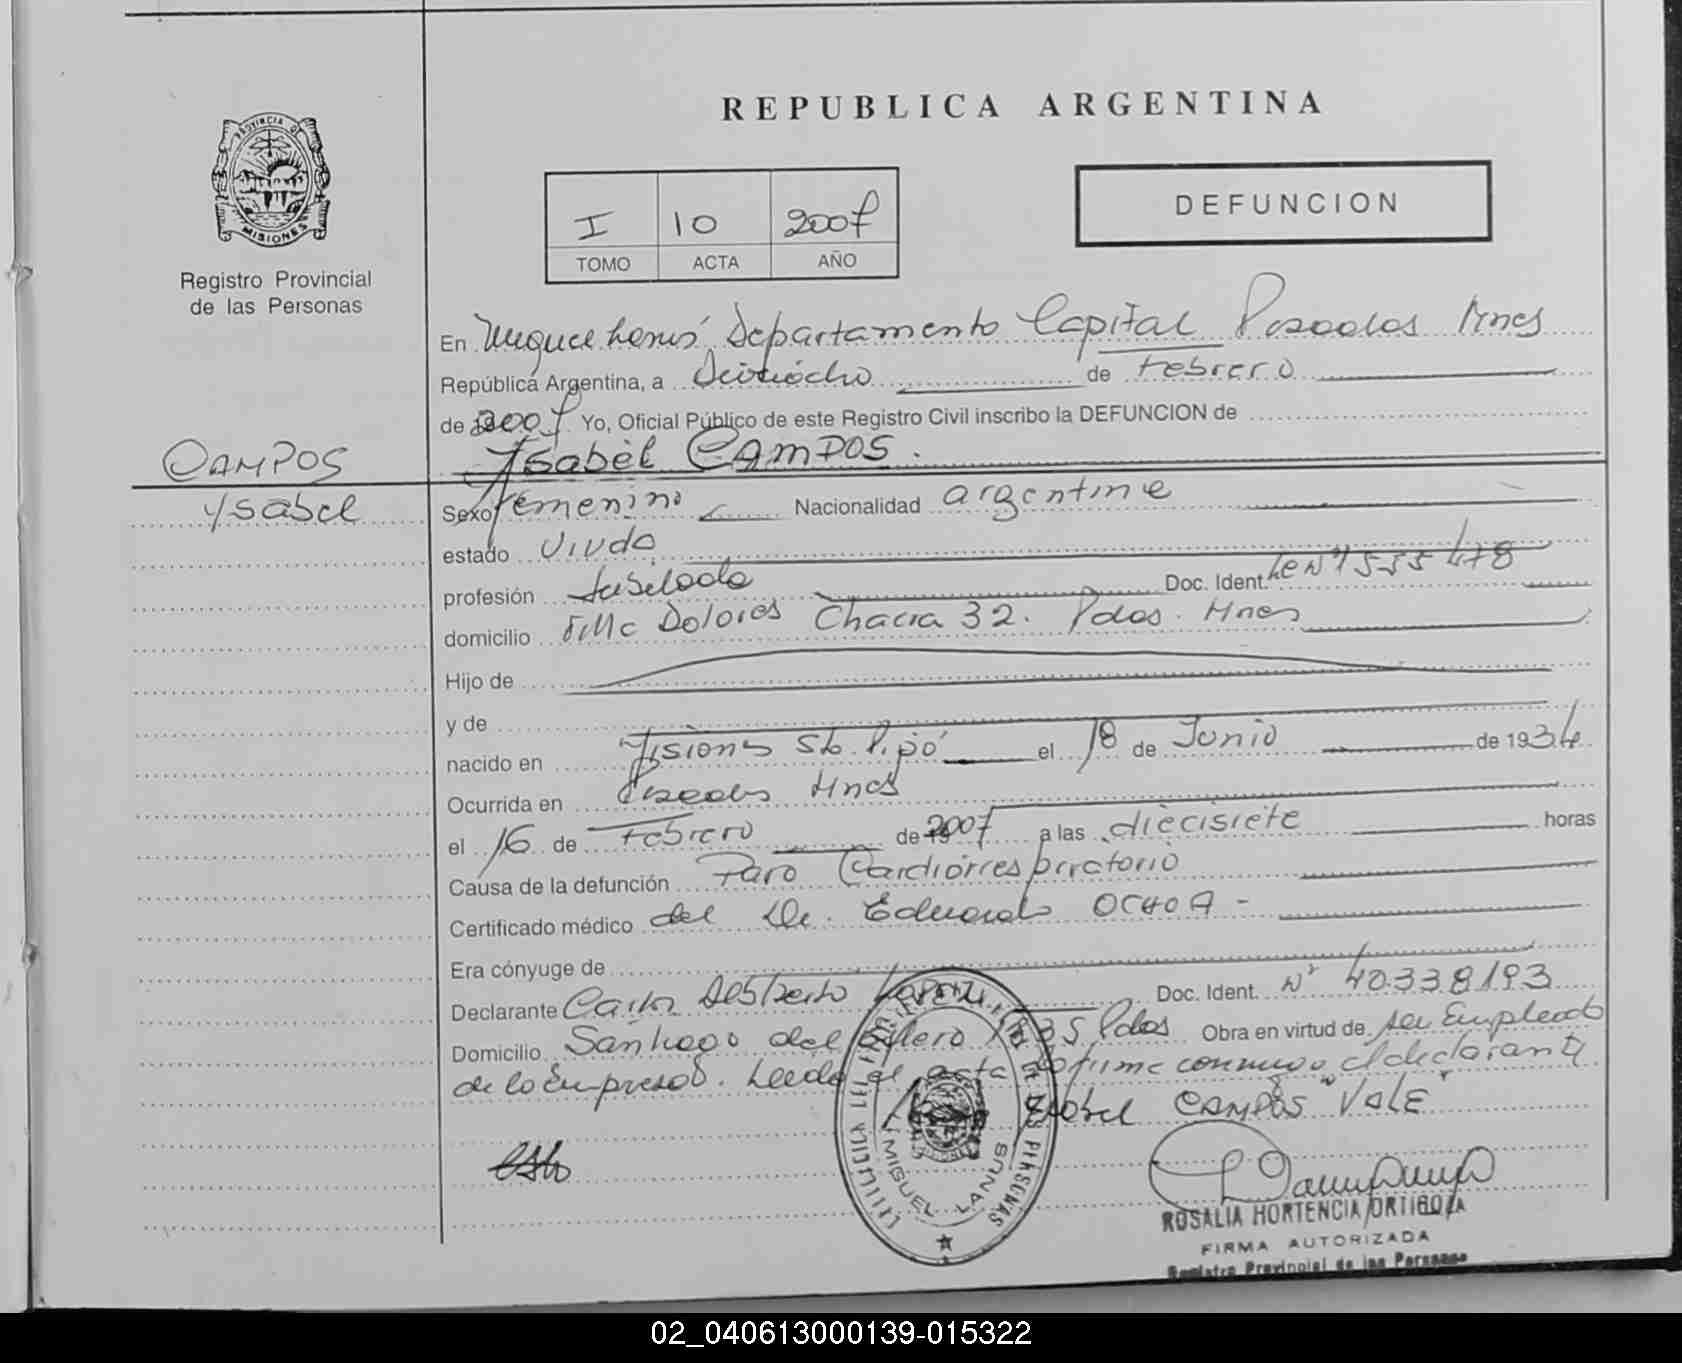 REPUBLICA ARGENTINA
PROVINCIA DE
MISIONES
Registro Provincial
de las Personas
I 10 2007
TOMO ACTA AÑO
DEFUNCION
En Miguel Lanús Departamento Capital Posadas Mnes
República Argentina, a Dieciocho de Febrero
de 2007 Yo, Oficial Público de este Registro Civil inscribo la DEFUNCION de
CAMPOS
Ysabel CAMPOS.
Ysabel
Sexo femenino Nacionalidad argentina
estado Viuda
profesión Jubilada Doc. Ident. LC Nº 1555478
domicilio Villa Dolores Chacra 32. Pdas. Mnes
Hijo de
y de
nacido en Misiones Sto. Pipó el 18 de Junio de 1934
Ocurrida en Posadas Mnes
el 16 de Febrero de 2007 a las diecisiete horas
Causa de la defunción Paro Cardiorrespiratorio
Certificado médico del Dr. Eduardo OCHOA -
Era cónyuge de
Declarante Carlos Doc. Ident. Nº 40.338.193
Domicilio Santiago del Estero 35 Pdas Obra en virtud de ser Empleado
de la Empresa. Leida el acta firma conmigo el declarante
Isabel CAMPOS "VALE"
MIGUEL LANUS
ROSALIA HORTENCIA ORTIGOZA
FIRMA AUTORIZADA
Registro Provincial de las Personas
02_040613000139-015322